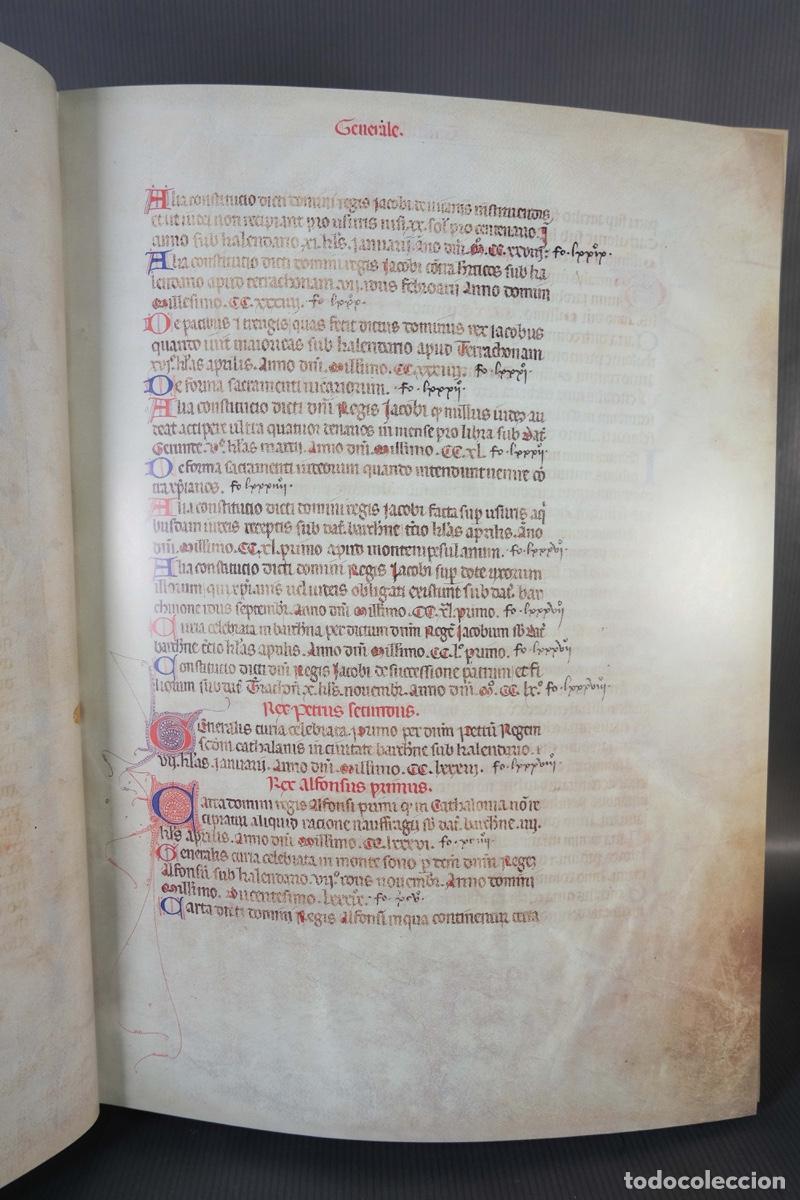 Generale.
Alia constitucio dicti domini regis Jacobi de usuris instruendis
et ut iudei non recipiant pro usuris nisi .xx. sol pro centenario. ī
anno sub kalendario .xi. kls. Januarij. Año dñi. M̊. CC. xxviij. fo. lxxix.
Alia constitucio dicti domini regis Jacobi cont̄ hēticos sub ka
lendario apud terrachonam .vii. idus februarii Anno domini
Millesimo. CC. xxxiii. fo. lxxx.
De pacibus ⁊ treugis quas fecit dictus dominus rex Jacobus
quando iuit maioricas sub kalendario apud Terrachonam
kls aprilis. Anno dñi. Millimo. CC. xxxiiij. fo. lxxxi.
De forma sacramenti vicariorum. fo. lxxxii.
Alia constitucio dicti dñi Regis Jacobi q̄ nullus iudex au
deat accipere ultra quatuor denarios in mense pro libra sub dat̄.
Gerunde. kls martii. Anno dñi. Millimo. CC. xl. fo. lxxxii.
De forma sacramenti iudeorum quando intendunt venire cō
tra xp̄ianos. fo. lxxxiiij.
Alia constitucio dicti domini regis Jacobi facta sup̄ usuris a q̄
busdam iudeis receptis sub dat̄. barchñe. t̄cio kls aprilis. Año
dñi. Millimo. CC. xl. primo apud montempesulanum. fo. lxxxvi.
Alia constitucio dicti domini Regis Jacobi sup̄ dote uxorum
illorum qui xp̄ianis vel iudeis obligati existunt sub dat̄. bar
chinone idus septembr̄. Anno dñi Millimo. CC. xl. primo. fo. lxxxvii
Curia celebrata in barchña per dictum dñm Regē Jacobum sb̄ dat̄.
barchñe t̄cio kls aprilis. Anno dñi Millimo. CC. l̊. primo. fo. lxxxvii
Constitucio dicti dñi Regis Jacobi de successione patrum et fi
liorum sub dat̄. Trachoñ. x. kls. novembr̄. Anno dñi. M̊. CC. lx̊. fo. lxxxviij.
Rex Petrus secundus.
Generalis curia celebrata. Primo per dñm Petrū Regem
scdm cathalanis in civitate barchñe sub kalendario.
vij. kls. Januarij. Anno dñi. Millimo. CC. lxxxiij. fo. lxxxviij.
Rex Alfonsus primus.
Carta domini regis Alfonsi primi q̄ in Cathalonia nō re
cipiatur aliquid racione naufragii sb̄ dat̄. barchñe. iiij.
kls aprilis. Anno dñi. Millimo. CC. lxxxvi. fo. xciiij
Generalis curia celebrata in monte sono p̄ dñm Regē
Alfonsū sub kalendario. vij̊. idus novembr̄. Anno domini
Millimo. Ducentesimo. lxxxix. fo. xcv.
Carta dicti domini Regis Alfonsi in qua continentur certa
todocoleccion